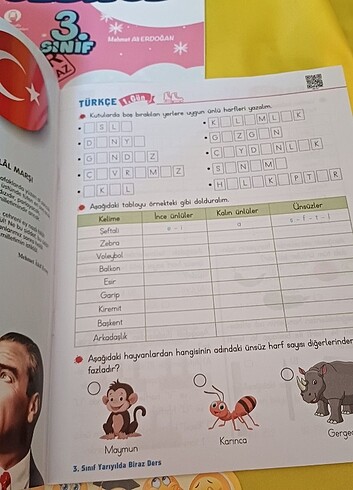 3.
SINIF
Mehmet Ali ERDOĞAN
TÜRKÇE 1. Gün
Kutularda boş bırakılan yerlere uygun ünlü harfleri yazalım.
S L
K L M L K
D N Y
G Z G N
G N D Z
C Y D N L K
C V R M Z
S N M
K L
H L K P T R
Aşağıdaki tabloyu örnekteki gibi dolduralım.
Kelime İnce ünlüler Kalın ünlüler Ünsüzler
Şeftali e - i a ş - f - t - l
Zebra
Voleybol
Balkon
Esir
Garip
Kiremit
Başkent
Arkadaşlık
Aşağıdaki hayvanlardan hangisinin adındaki ünsüz harf sayısı diğerlerinden
fazladır?
Maymun
Karınca
Gerge
3. Sınıf Yarıyılda Biraz Ders